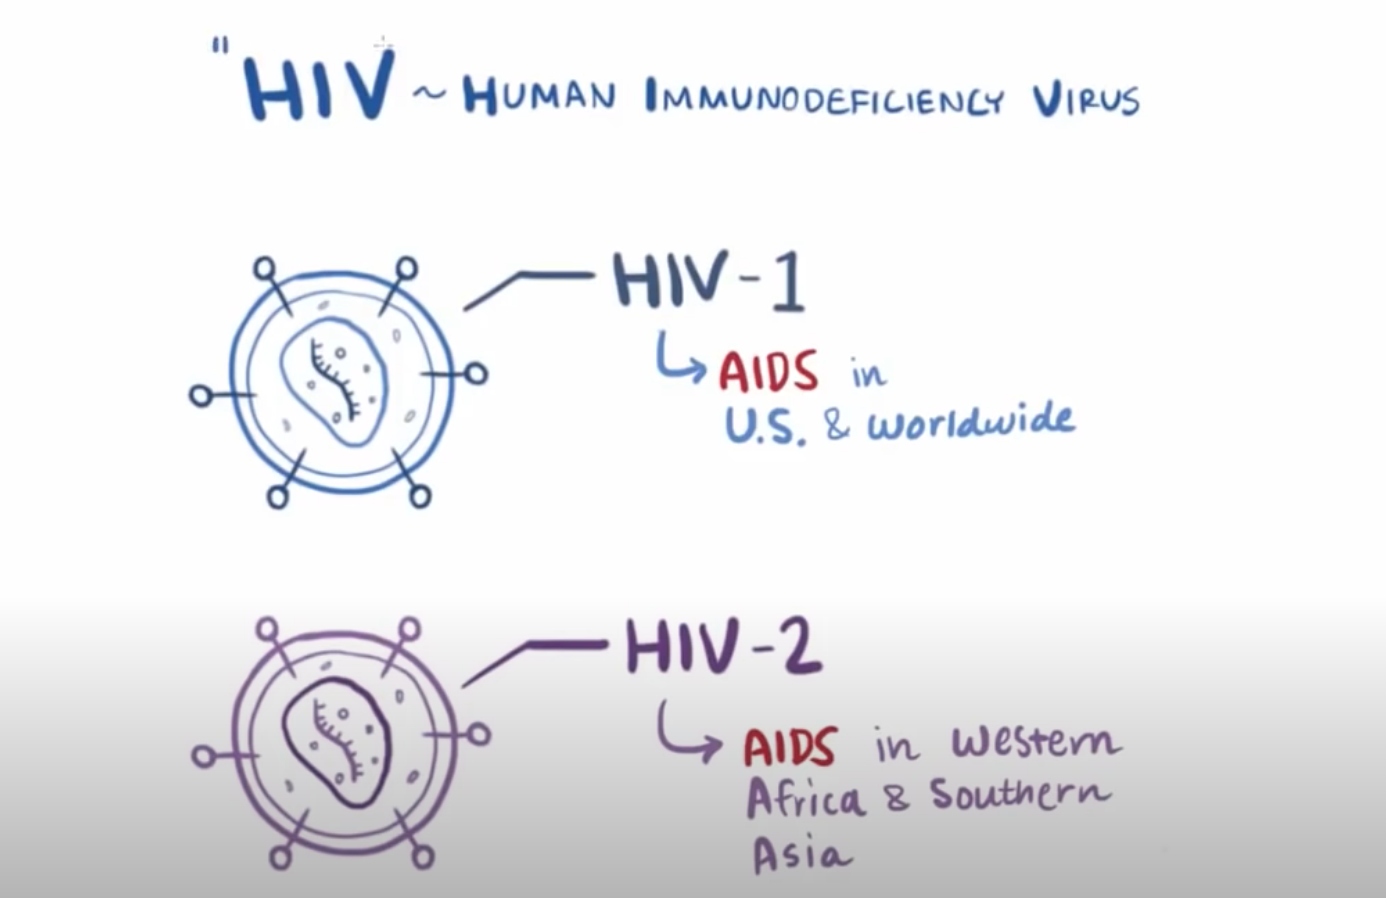 " HIV ~ HUMAN IMMUNODEFICIENCY VIRUS
HIV-1
AIDS in
U.S. & worldwide
HIV-2
AIDS in Western
Africa & Southern
Asia